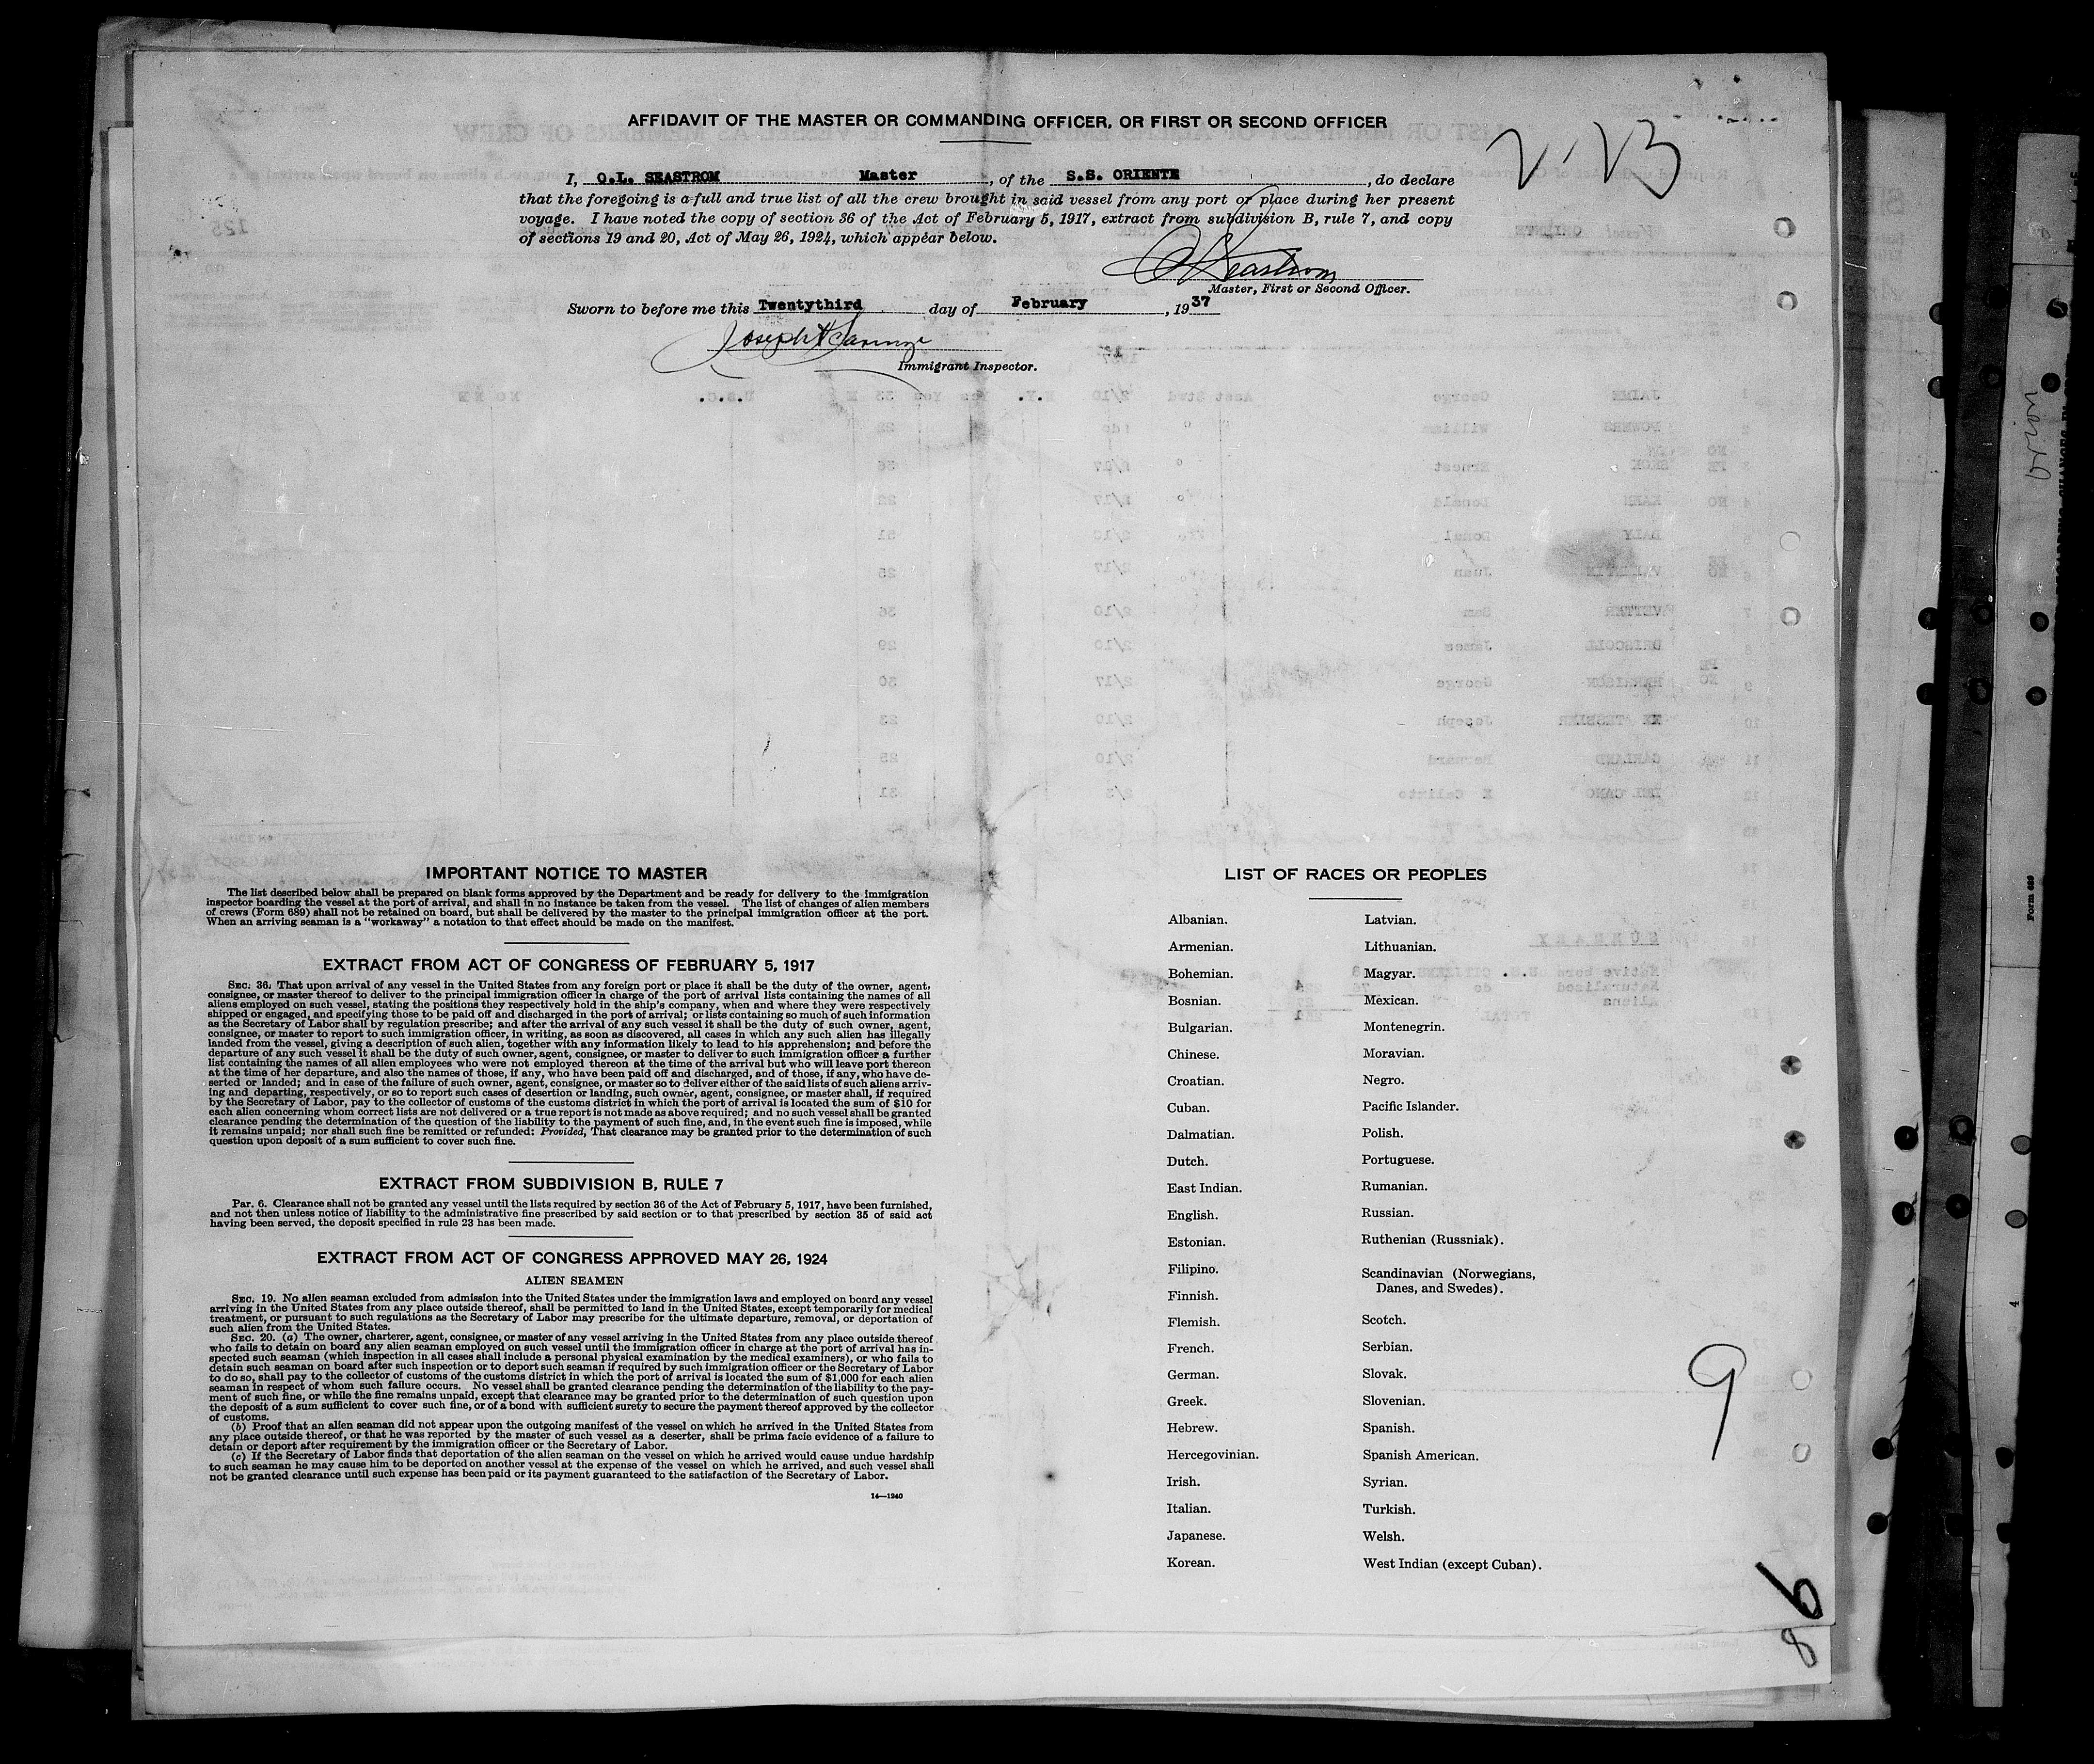 AFFIDAVIT OF THE MASTER OR COMMANDING OFFICER, OR FIRST OR SECOND OFFICER
I, O.L. SEASTROM Master, of the S.S. ORIENTE, do declare
that the foregoing is a full and true list of all the crew brought in said vessel from any port or place during her present
voyage. I have noted the copy of section 36 of the Act of February 5, 1917, extract from subdivision B, rule 7, and copy
of sections 19 and 20, Act of May 26, 1924, which appear below.
2-23
O L Seastrom
Master, First or Second Officer.
Sworn to before me this Twentythird day of February, 1937
Joseph
Immigrant Inspector.
IMPORTANT NOTICE TO MASTER
The list described below shall be prepared on blank forms approved by the Department and be ready for delivery to the immigration
inspector boarding the vessel at the port of arrival, and shall in no instance be taken from the vessel. The list of changes of alien members
of crews (Form 689) shall not be retained on board, but shall be delivered by the master to the principal immigration officer at the port.
When an arriving seaman is a "workaway" a notation to that effect should be made on the manifest.
EXTRACT FROM ACT OF CONGRESS OF FEBRUARY 5, 1917
SEC. 36. That upon arrival of any vessel in the United States from any foreign port or place it shall be the duty of the owner, agent,
consignee, or master thereof to deliver to the principal immigration officer in charge of the port of arrival lists containing the names of all
aliens employed on such vessel, stating the positions they respectively hold in the ship's company, when and where they were respectively
shipped or engaged, and specifying those to be paid off and discharged in the port of arrival; or lists containing so much of such information
as the Secretary of Labor shall by regulation prescribe; and after the arrival of any such vessel it shall be the duty of such owner, agent,
consignee, or master to report to such immigration officer, in writing, as soon as discovered, all cases in which any such alien has illegally
landed from the vessel, giving a description of such alien, together with any information likely to lead to his apprehension; and before the
departure of any such vessel it shall be the duty of such owner, agent, consignee, or master to deliver to such immigration officer a further
list containing the names of all alien employees who were not employed thereon at the time of the arrival but who will leave port thereon
at the time of her departure, and also the names of those, if any, who have been paid off and discharged, and of those, if any, who have de-
serted or landed; and in case of the failure of such owner, agent, consignee, or master so to deliver either of the said lists of such aliens arriv-
ing and departing, respectively, or so to report such cases of desertion or landing, such owner, agent, consignee, or master shall, if required
by the Secretary of Labor, pay to the collector of customs of the customs district in which the port of arrival is located the sum of $10 for
each alien concerning whom correct lists are not delivered or a true report is not made as above required; and no such vessel shall be granted
clearance pending the determination of the question of the liability to the payment of such fine, and, in the event such fine is imposed, while
it remains unpaid; nor shall such fine be remitted or refunded: Provided, That clearance may be granted prior to the determination of such
question upon deposit of a sum sufficient to cover such fine.
EXTRACT FROM SUBDIVISION B, RULE 7
Par. 6. Clearance shall not be granted any vessel until the lists required by section 36 of the Act of February 5, 1917, have been furnished,
and not then unless notice of liability to the administrative fine prescribed by said section or to that prescribed by section 35 of said act
having been served, the deposit specified in rule 23 has been made.
EXTRACT FROM ACT OF CONGRESS APPROVED MAY 26, 1924
ALIEN SEAMEN
SEC. 19. No alien seaman excluded from admission into the United States under the immigration laws and employed on board any vessel
arriving in the United States from any place outside thereof, shall be permitted to land in the United States, except temporarily for medical
treatment, or pursuant to such regulations as the Secretary of Labor may prescribe for the ultimate departure, removal, or deportation of
such alien from the United States.
SEC. 20. (a) The owner, charterer, agent, consignee, or master of any vessel arriving in the United States from any place outside thereof
who fails to detain on board any alien seaman employed on such vessel until the immigration officer in charge at the port of arrival has in-
spected such seaman (which inspection in all cases shall include a personal physical examination by the medical examiners), or who fails to
detain such seaman on board after such inspection or to deport such seaman if required by such immigration officer or the Secretary of Labor
to do so, shall pay to the collector of customs of the customs district in which the port of arrival is located the sum of $1,000 for each alien
seaman in respect of whom such failure occurs. No vessel shall be granted clearance pending the determination of the liability to the pay-
ment of such fine, or while the fine remains unpaid, except that clearance may be granted prior to the determination of such question upon
the deposit of a sum sufficient to cover such fine, or of a bond with sufficient surety to secure the payment thereof approved by the collector
of customs.
(b) Proof that an alien seaman did not appear upon the outgoing manifest of the vessel on which he arrived in the United States from
any place outside thereof, or that he was reported by the master of such vessel as a deserter, shall be prima facie evidence of a failure to
detain or deport after requirement by the immigration officer or the Secretary of Labor.
(c) If the Secretary of Labor finds that deportation of the alien seaman on the vessel on which he arrived would cause undue hardship
to such seaman he may cause him to be deported on another vessel at the expense of the vessel on which he arrived, and such vessel shall
not be granted clearance until such expense has been paid or its payment guaranteed to the satisfaction of the Secretary of Labor.
14—1240
LIST OF RACES OR PEOPLES
Albanian.
Armenian.
Bohemian.
Bosnian.
Bulgarian.
Chinese.
Croatian.
Cuban.
Dalmatian.
Dutch.
East Indian.
English.
Estonian.
Filipino.
Finnish.
Flemish.
French.
German.
Greek.
Hebrew.
Hercegovinian.
Irish.
Italian.
Japanese.
Korean.
Latvian.
Lithuanian.
Magyar.
Mexican.
Montenegrin.
Moravian.
Negro.
Pacific Islander.
Polish.
Portuguese.
Rumanian.
Russian.
Ruthenian (Russniak).
Scandinavian (Norwegians,
Danes, and Swedes).
Scotch.
Serbian.
Slovak.
Slovenian.
Spanish.
Spanish American.
Syrian.
Turkish.
Welsh.
West Indian (except Cuban).
9
Form 689